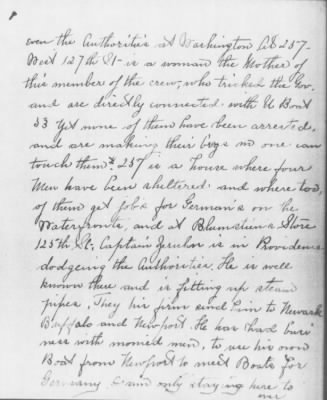 even the Authorities at Washington At 257-
West 127th St- is a woman the Mother of
this member of the crew, who tricked the Gov.
and are directly connected with U Boat
53 yet none of them have been arrested,
and are making their brgs no one can
touch them. 257 is a house where four
Men have been sheltered and where two,
of them get jobs for German's on the
Waterfronts, and at Blumstiens Store
125th St. Captain is in Providence
dodgeing the authorities. He is well
known thee and is fitting up steam
pipes. They his firm send him to Newark
Buffalo and Newport. He has had busi
ness with monied men, to use his own
Boat from Newport to meet Boats for
Germany & and only staying here to